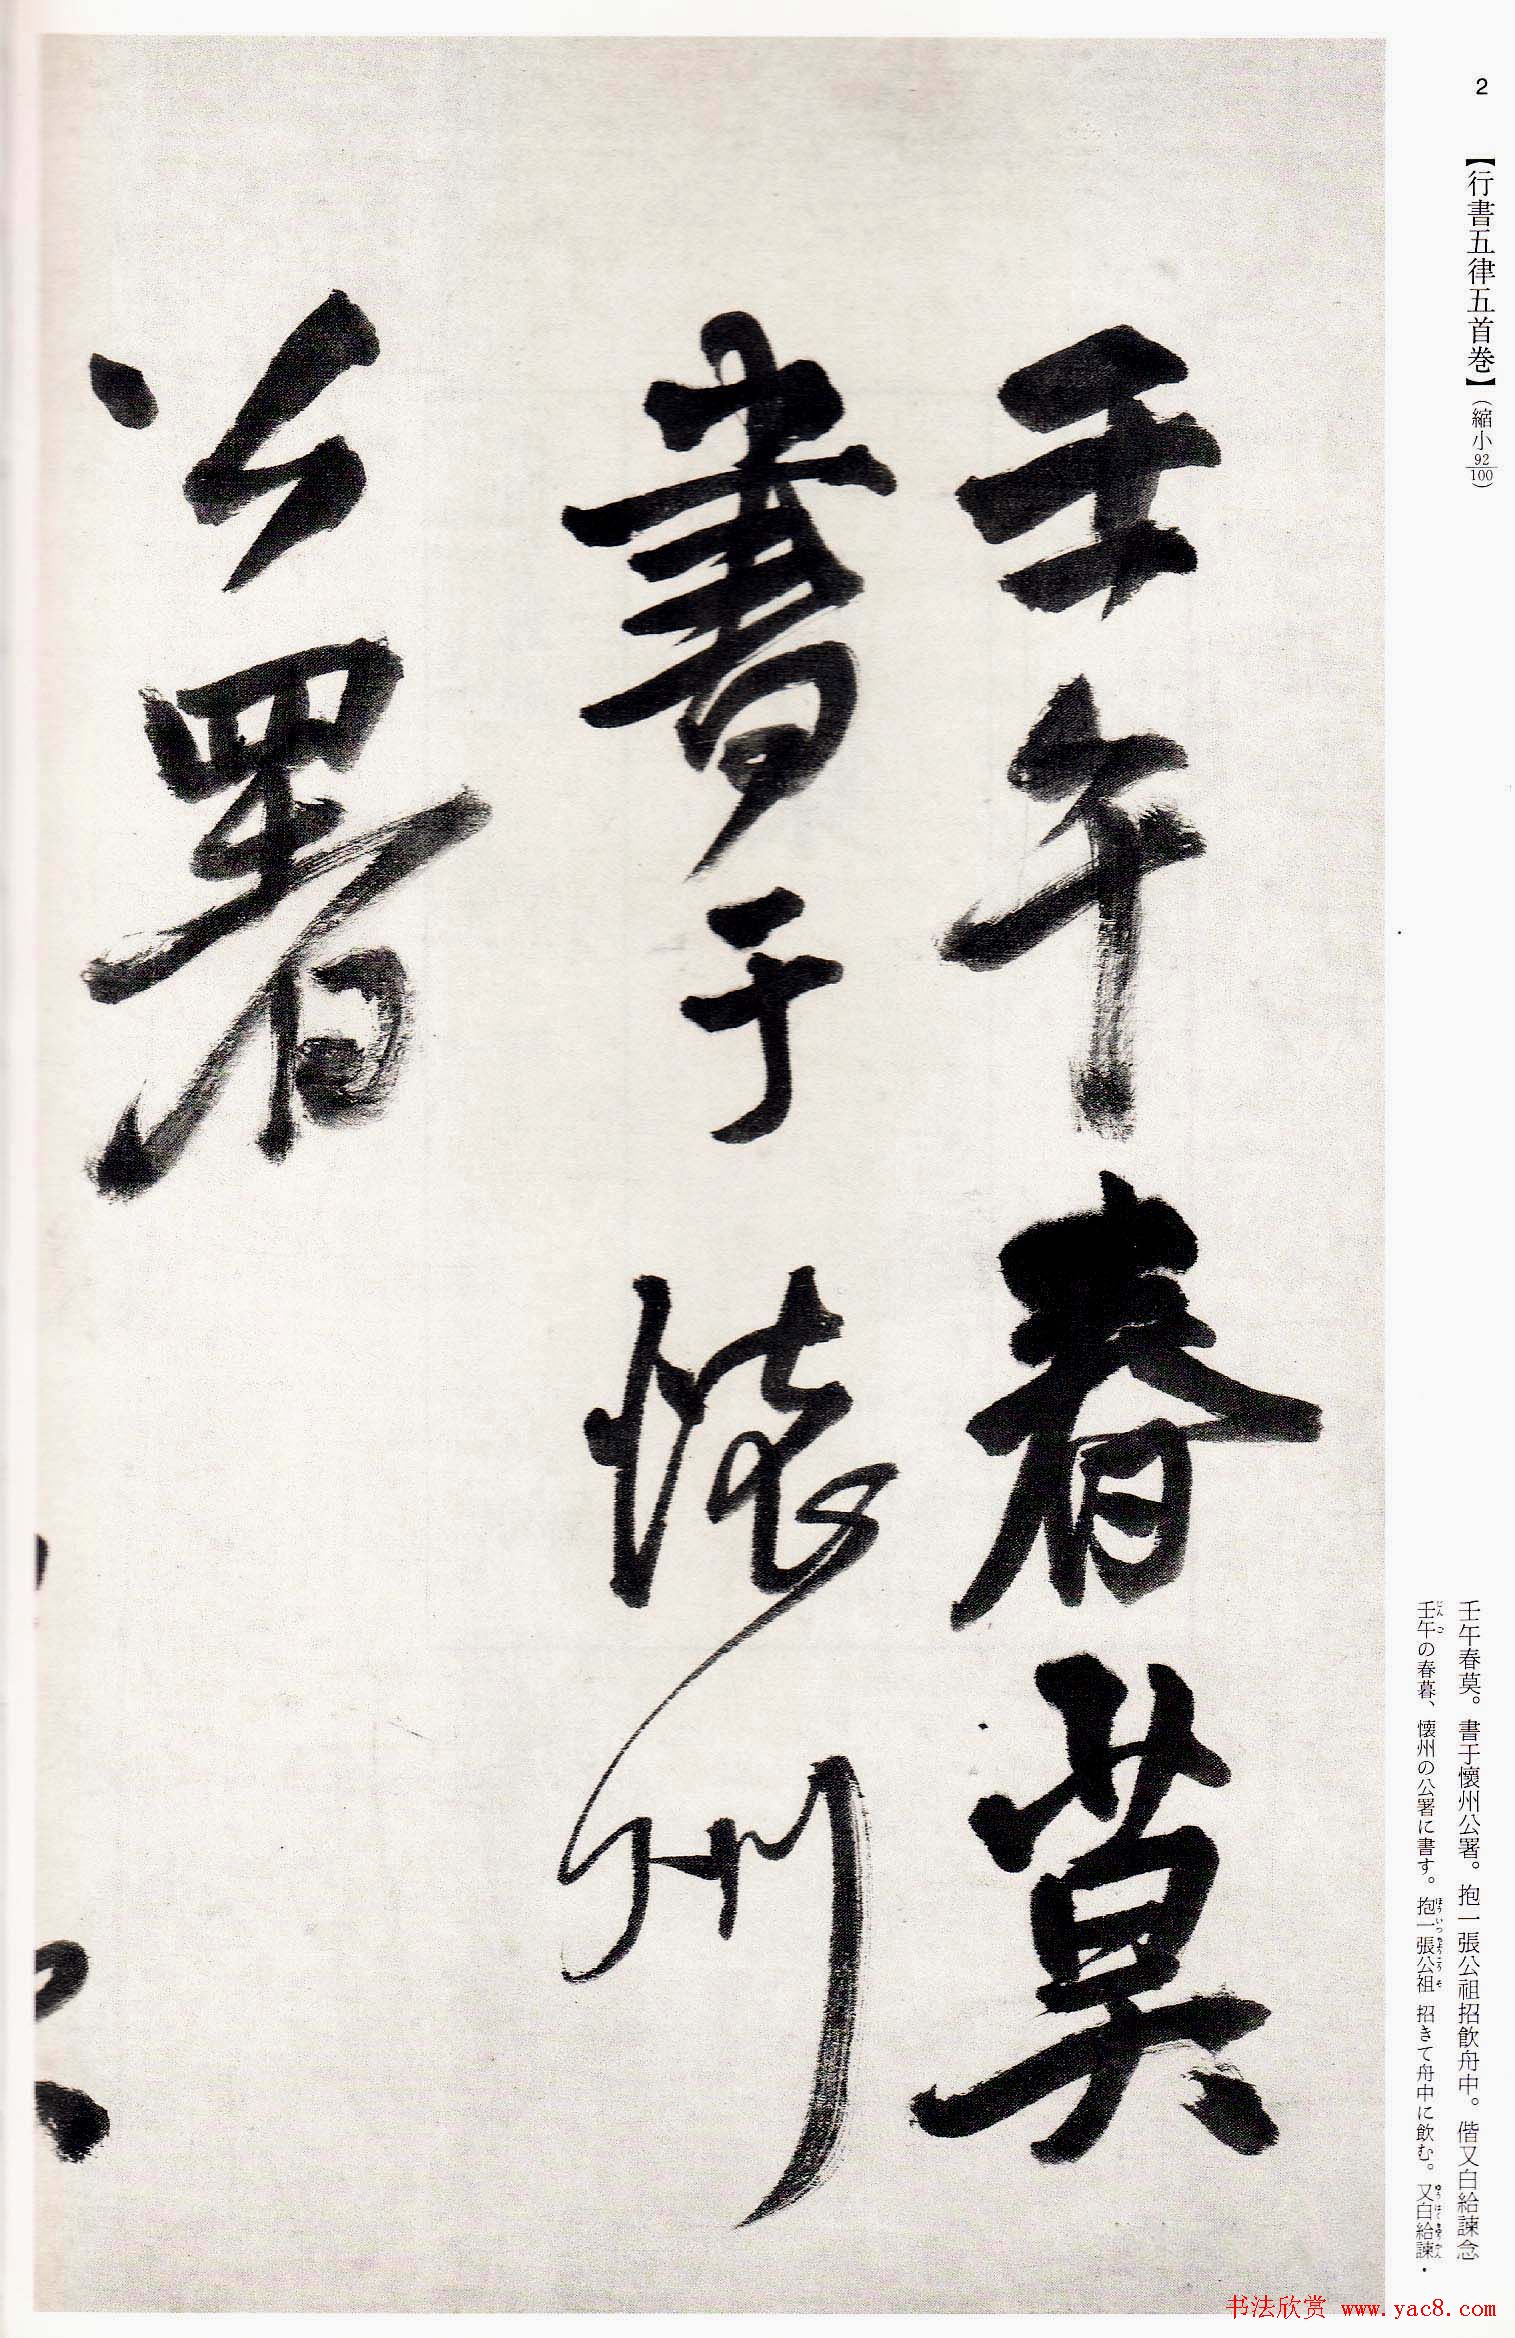 2
【行書五律五首巻】(縮小92/100)
壬午春莫。書于懷州公署。抱一張公祖招飲舟中。偕又白給諫念
壬午の春暮、懐州の公署に書す。抱一張公祖 招きて舟中に飲む。又白給諫・
壬午春莫
書于懷州
公署
书法欣赏 www.yac8.com